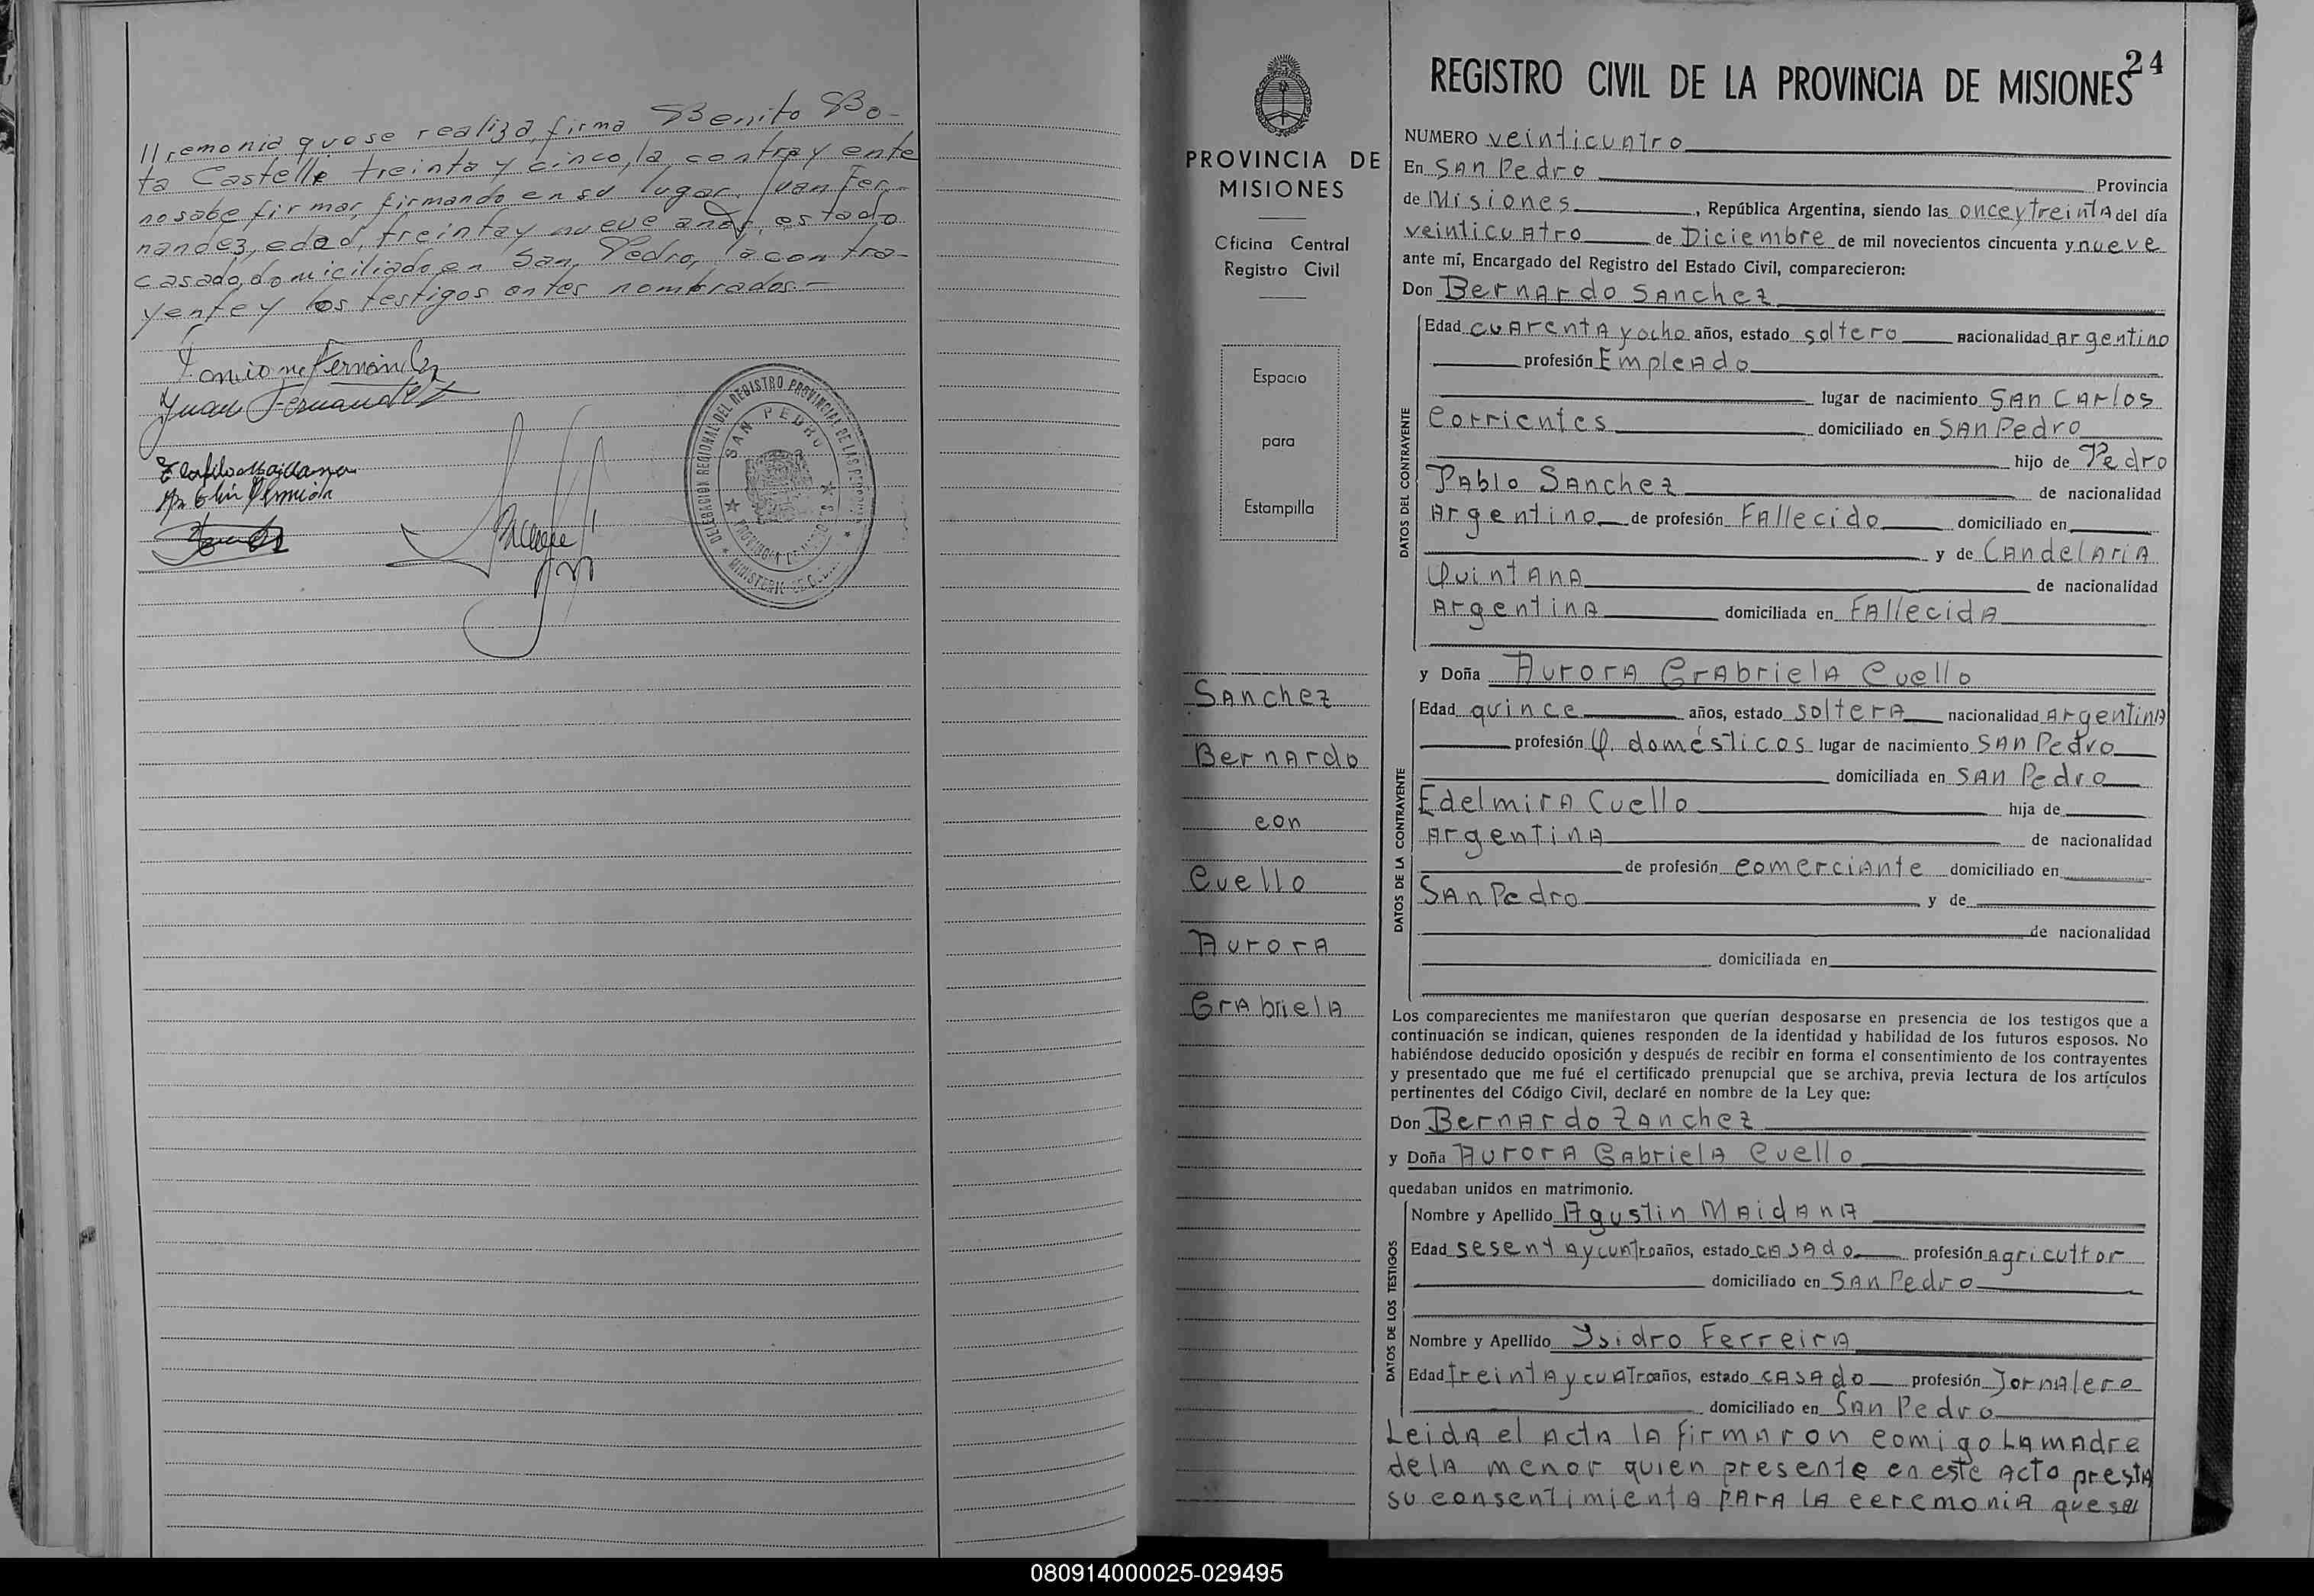 //remonia que se realiza, firma Benito Bo-
ta Castelli treinta y cinco, la contrayente
no sabe firmar, firmando en su lugar Juan Fer-
nandez, edad, treinta y nueve años, estado
casado, domiciliado en San Pedro, la contra-
yente y los testigos antes nombrados.-
Juan Fernandez
DELEGACIÓN REGIONAL DEL REGISTRO PROVINCIAL DE LAS
SAN PEDRO
24
REGISTRO CIVIL DE LA PROVINCIA DE MISIONES
PROVINCIA DE
MISIONES
Oficina Central
Registro Civil
Espacio
para
Estampilla
Sanchez
Bernardo
con
Cuello
Aurora
Grabriela
NUMERO veinticuatro
En San Pedro Provincia
de Misiones, República Argentina, siendo las once y treinta del día
veinticuatro de Diciembre de mil novecientos cincuenta y nueve
ante mí, Encargado del Registro del Estado Civil, comparecieron:
Don Bernardo Sanchez
DATOS DEL CONTRAYENTE
Edad cuarenta y ocho años, estado soltero nacionalidad argentino
profesión Empleado
lugar de nacimiento San Carlos
Corrientes domiciliado en San Pedro
hijo de Pedro
Pablo Sanchez de nacionalidad
Argentino de profesión Fallecido domiciliado en
y de Candelaria
Quintana de nacionalidad
Argentina domiciliada en Fallecida
y Doña Aurora Grabriela Cuello
DATOS DE LA CONTRAYENTE
Edad quince años, estado soltera nacionalidad Argentina
profesión Q. domésticos lugar de nacimiento San Pedro
domiciliada en San Pedro
Edelmira Cuello hija de
Argentina de nacionalidad
de profesión comerciante domiciliado en
San Pedro y de
de nacionalidad
domiciliada en
Los comparecientes me manifestaron que querían desposarse en presencia de los testigos que a
continuación se indican, quienes responden de la identidad y habilidad de los futuros esposos. No
habiéndose deducido oposición y después de recibir en forma el consentimiento de los contrayentes
y presentado que me fué el certificado prenupcial que se archiva, previa lectura de los artículos
pertinentes del Código Civil, declaré en nombre de la Ley que:
Don Bernardo Zanchez
y Doña Aurora Gabriela Cuello
quedaban unidos en matrimonio.
DATOS DE LOS TESTIGOS
Nombre y Apellido Agustin Maidana
Edad sesent ay cuatro años, estado casado profesión agricultor
domiciliado en San Pedro
Nombre y Apellido Ysidro Ferreira
Edad treinta y cuatro años, estado casado profesión Jornalero
domiciliado en San Pedro
Leida el acta la firmaron comigo La madre
dela menor quien presente en este acto presta
su consentimiento para la ceremonia que se//
080914000025-029495